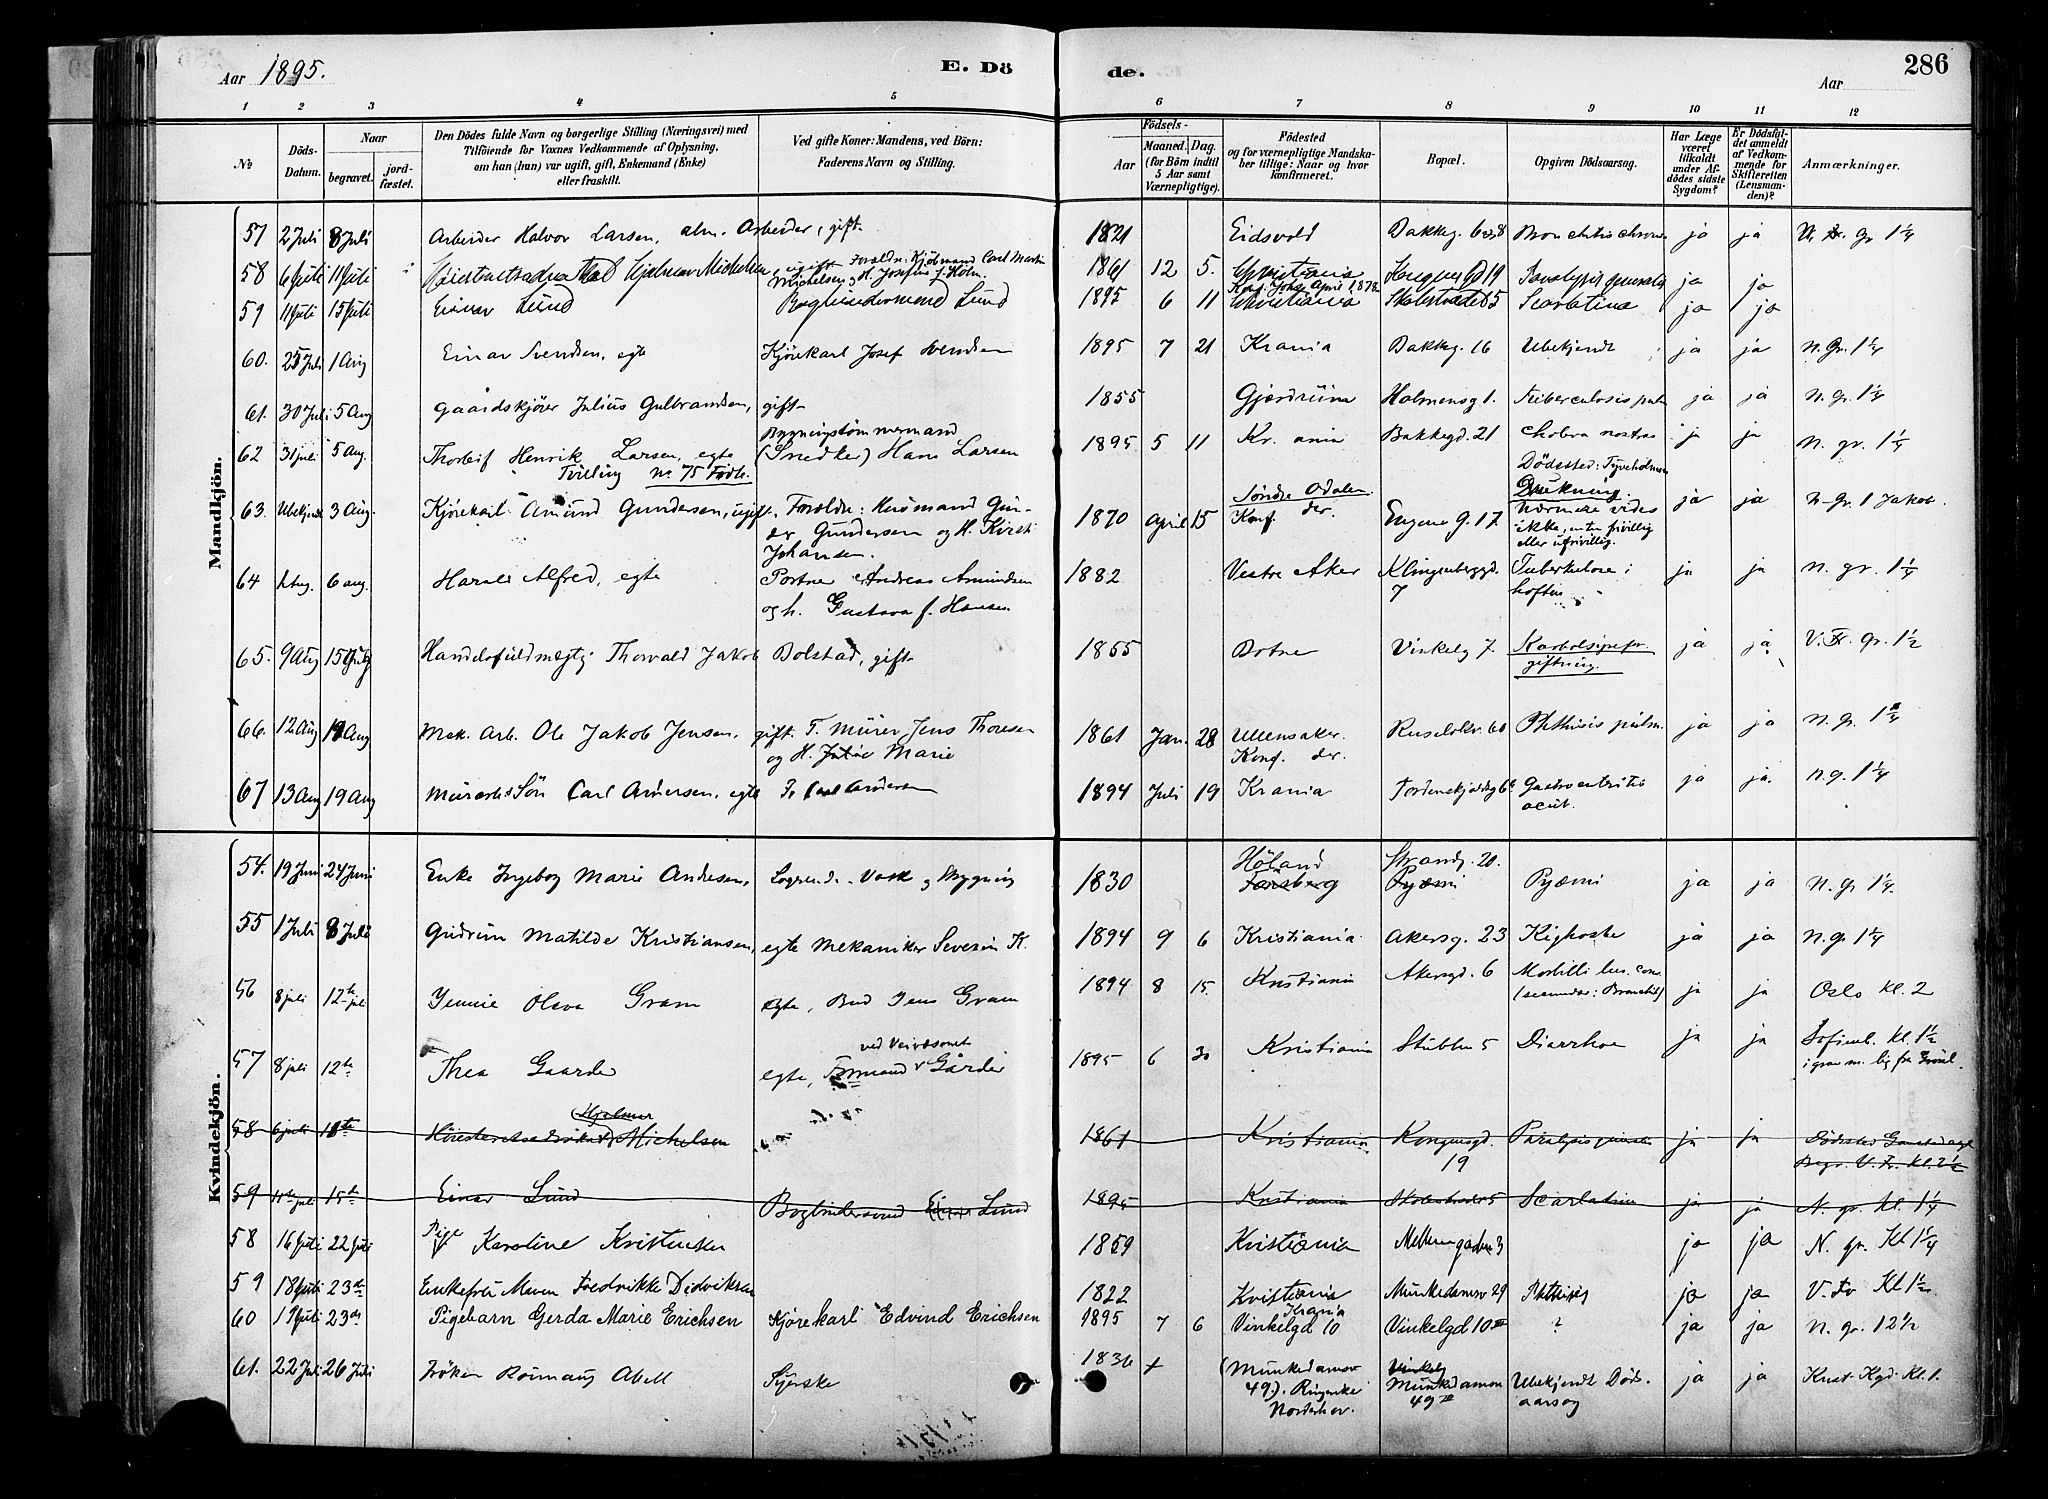 Aar 1895.
E. Dö
de.
Aar
286
1 2 3 4 5 6 7 8 9 10 11 12
No
Döds-Datum.
Naar
begravet.
jord-fæstet.
Den Dödes fulde Navn og borgerlige Stilling (Næringsvei) med
Tilföiende for Voxnes Vedkommende af Oplysning,
om han (hun) var ugift, gift, Enkemand (Enke)
eller fraskilt.
Ved gifte Koner: Mandens, ved Börn:
Faderens Navn og Stilling.
Födsels-
Aar
Maaned. Dag.
(for Börn indtil
5 Aar samt
Værnepligtige).
Födested
og for værnepligtige Mandska-
ber tillige: Naar og hvor
konfirmeret.
Bopæl.
Opgiven Dödsaarsag.
Har Læge
været
tilkaldt
under Af-
dödes sidste
Sygdom?
Er Dödsfal-
det anmeldt
af Vedkom-
mende for
Skifteretten
(Lensman-
den)?
Anmærkninger.
Mandkjön.
57 2 Juli 8 Juli Arbeider Halvor Larsen, alm. Arbeider, gift 1821 Eidsvold Bakkeg. ja ja gr 1 1/4
58 6 Juli 11 Juli Hjalmar Michelsen, ugift Foreldre: Kjøbmand Carl Martin
Michelsen og H. Josefine f. Holm. 1861 12 5. Christiania 19 Paralysis generalis ja ja
Konf. April 1878.
59 11 Juli 15 Juli Einar Lund Bogbindersvend Lund 1895 6 11 Christiania Skolestrædet 5 Scarlatina ja ja
60. 25 Juli 1 Aug Einar Svendsen, egte Kjørekarl Josef Svendsen 1895 7 21 Krania Bakkeg. 16 Ubekjendt ja ja N. Gr. 1 1/4
61. 30 Juli 5 Aug Gaardskjører Julius Gulbrandsen, gift 1855 Gjerdrum Holmensg 1. Tuberculosis pulm ja ja N. gr. 1 1/4
62 31 juli 5 Aug. Thorleif Henrik Larsen, egte Bygningstømmermand
(Snedker) Hans Larsen 1895 5 11 Kr. ania Bakkegd. 21 Cholera nostras ja ja N. gr. 1 1/4
Tvilling No 75 Fødte.
63. Ubekjendt 3 Aug. Kjørekarl Amund Gundersen, ugift. Foreldre: Gun-
der Gundersen og H. Kirsti
Johansen. 1870 April 15 Søndre Odalen.
Konf. der. Eugene g. 17 Dødssted: Tyveholmen
Drukning.
Nærmere vides
ikke, enten frivillig
eller ufrivillig. ja ja N. Gr. 1 Jakob.
64 2 Aug. 6 aug. Harald Alfred, egte Portner Andreas Amundsen
og h. Gustava f. Hansen 1882 Vestre Aker Klingenberggd.
7 Tuberkulose i
hoften ja ja N. gr. 1 1/4
65. 9 Aug 15 Aug Handelsfuldmægtig Thorvald Jakob Bolstad, gift 1855 Botne Vinkelg 7. Karbolsyrefor-
giftning. ja ja. V. Fr. gr. 1 1/2
66. 12 Aug 19 Aug Mek. Arb. Ole Jakob Jensen, gift. F. Murer Jens Thoresen
og H. Marie 1861 Jan. 28 Ullensaker.
Konf. der. Ruseløkv. 60 Phthisis pulm. ja ja N. gr.
67 13 Aug 19 Aug Carl Andersen, egte F. Carl Andersen 1894 Juli 19 Krania Tordenskjoldsg Gastroenteritis
acut. ja ja. N. g. 1 1/4
Kvindekjön.
54. 19 Juni 24 Juni Enke Ingeborg Marie Andresen, Vask og Strygning 1830 Höland Strandg. 20. Pyæmi ja ja N. gr 1 1/4.
55 1 Juli 8 Juli Gudrun Matilde Kristiansen, egte Mekaniker Severin K. 1894 9 6 Kristiania. Akersg. 23 Kighoste ja ja N. gr 1 1/4
56 8 juli 12te juli Jennie Olava Gram Egte, Bud Jens Gram 1894 8 15. Kristiania Akersgd. 6 Morbilli
(secundær: Bronchit) ja ja Oslo Kl. 2
57 8 juli 12te Thea Gaarder egte, Formand ved Veivæsenet Gårder 1895 6 30 Kristiania Stubben 5 Diarrhoe ja ja Sofienb. Kl. 1 1/2
58 6 juli 11te Hjalmar Michelsen 1861 Kristiania Kongensgd.
19 Paralysis ja ja Dødssted
Begr. V. Fr. Kl. 2 1/2
59 11te juli 15te Einar Lund Bogbindersvend Einar Lund 1895 Kristiania Skolestrædet 5 Scarlatina ja ja N. gr. Kl. 1 1/4
58 16 juli 22 juli Pige Karoline Kristensen 1859 Kristiania Mellemgaden 3 ja ja N. gr. Kl 1 1/4
59 18 juli 23de Enkefru Maren Fredrikke Didriksen 1822 Kristiania Munkedamsv 29 Phthisis ja ja V. Fr Kl 1 1/2
60 19 juli 23de Pigebarn Gerda Marie Erichsen Kjørekarl Edvind Erichsen 1895 7 6 Krania
Vinkelgd 10 Vinkelgd 10 ? ja ja N. gr. 12 1/2
61. 22 Juli 26 Juli Frøken Abell Syerske 1836 (Munkedamsv
49.). Ringerike
Norderhov. Vinkelg
Munkedamsv
49 Ubekjendt Døds-
aarsag ja ja Krist. Kgd. Kl. 1.